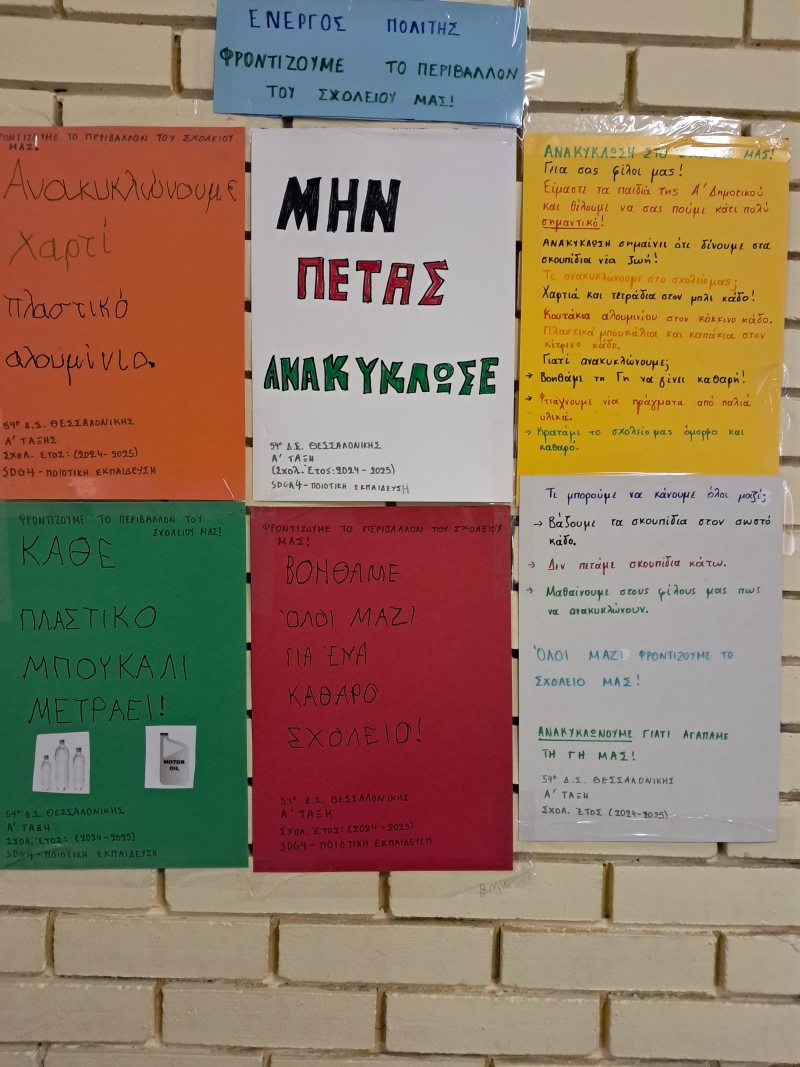 ΕΝΕΡΓΟΣ ΠΟΛΙΤΗΣ
ΦΡΟΝΤΙΖΟΥΜΕ ΤΟ ΠΕΡΙΒΑΛΛΟΝ
ΤΟΥ ΣΧΟΛΕΙΟΥ ΜΑΣ!
ΡΟΝΤΙΖΟΥΜΕ ΤΟ ΠΕΡΙΒΑΛΛΟΝ ΤΟΥ ΣΧΟΛΕΙΟΥ
ΜΑΣ!
Ανακυκλώνουμε
χαρτί
πλαστικό
αλουμίνιο.
54ο Δ.Σ. ΘΕΣΣΑΛΟΝΙΚΗΣ
Α' ΤΑΞΗΣ
ΣΧΟΛ. ΕΤΟΣ: (2024-2025)
SDG4-ΠΟΙΟΤΙΚΗ ΕΚΠΑΙΔΕΥΣΗ
ΜΗΝ
ΠΕΤΑΣ
ΑΝΑΚΥΚΛΩΣΕ
54ο Δ.Σ. ΘΕΣΣΑΛΟΝΙΚΗΣ
Α' ΤΑΞΗ
(ΣΧΟΛ. ΈΤΟΣ:2024-2025)
SDGA4-ΠΟΙΟΤΙΚΗ ΕΚΠΑΙΔΕΥΣΗ
ΑΝΑΚΥΚΛΩΣΗ ΣΤΟ ΜΑΣ!
Γεια σας φίλοι μας!
Είμαστε τα παιδιά της Α' Δημοτικού
και θέλουμε να σας πούμε κάτι πολύ
σημαντικό!
ΑΝΑΚΥΚΛΩΣΗ σημαίνει ότι δίνουμε στα
σκουπίδια νέα ζωή!
Τι ανακυκλώνουμε στο σχολείο μας;
Χαρτιά και τετράδια στον μπλε κάδο!
Κουτάκια αλουμινίου στον κόκκινο κάδο.
Πλαστικά μπουκάλια και καπάκια στον
κίτρινο κάδο.
Γιατί ανακυκλώνουμε;
→ Βοηθάμε τη Γη να γίνει καθαρή!
→ Φτιάχνουμε νέα πράγματα από παλιά
υλικά.
→ Κρατάμε το σχολείο μας όμορφο και
καθαρό.
ΦΡΟΝΤΙΖΟΥΜΕ ΤΟ ΠΕΡΙΒΑΛΛΟΝ ΤΟΥ
ΣΧΟΛΕΙΟΥ ΜΑΣ!
ΚΑΘΕ
ΠΛΑΣΤΙΚΟ
ΜΠΟΥΚΑΛΙ
ΜΕΤΡΑΕΙ!
MOTOR
OIL
54ο Δ.Σ. ΘΕΣΣΑΛΟΝΙΚΗΣ
Α' ΤΑΞΗ
ΣΧΟΛ. ΈΤΟΣ: (2024-2025)
SDG4-ΠΟΙΟΤΙΚΗ ΕΚΠΑΙΔΕΥΣΗ
ΦΡΟΝΤΙΖΟΥΜΕ ΤΟ ΠΕΡΙΒΑΛΛΟΝ ΤΟΥ ΣΧΟΛΕΙΟΥ
ΜΑΣ!
ΒΟΗΘΑΜΕ
ΌΛΟΙ ΜΑΖΙ
ΓΙΑ ΈΝΑ
ΚΑΘΑΡΟ
ΣΧΟΛΕΙΟ!
54ο Δ.Σ. ΘΕΣΣΑΛΟΝΙΚΗΣ
Α' ΤΑΞΗ
ΣΧΟΛ. ΈΤΟΣ: (2024-2025)
SDG4-ΠΟΙΟΤΙΚΗ ΕΚΠΑΙΔΕΥΣΗ
Τι μπορούμε να κάνουμε όλοι μαζί;
→ Βάζουμε τα σκουπίδια στον σωστό
κάδο.
→ Δεν πετάμε σκουπίδια κάτω.
→ Μαθαίνουμε στους φίλους μας πως
να ανακυκλώνουν.
ΌΛΟΙ ΜΑΖΙ ΦΡΟΝΤΙΖΟΥΜΕ ΤΟ
ΣΧΟΛΕΙΟ ΜΑΣ!
ΑΝΑΚΥΚΛΩΝΟΥΜΕ ΓΙΑΤΙ ΑΓΑΠΑΜΕ
ΤΗ ΓΗ ΜΑΣ!
54ο Δ.Σ. ΘΕΣΣΑΛΟΝΙΚΗΣ
Α' ΤΑΞΗ
ΣΧΟΛ. ΈΤΟΣ (2024-2025)